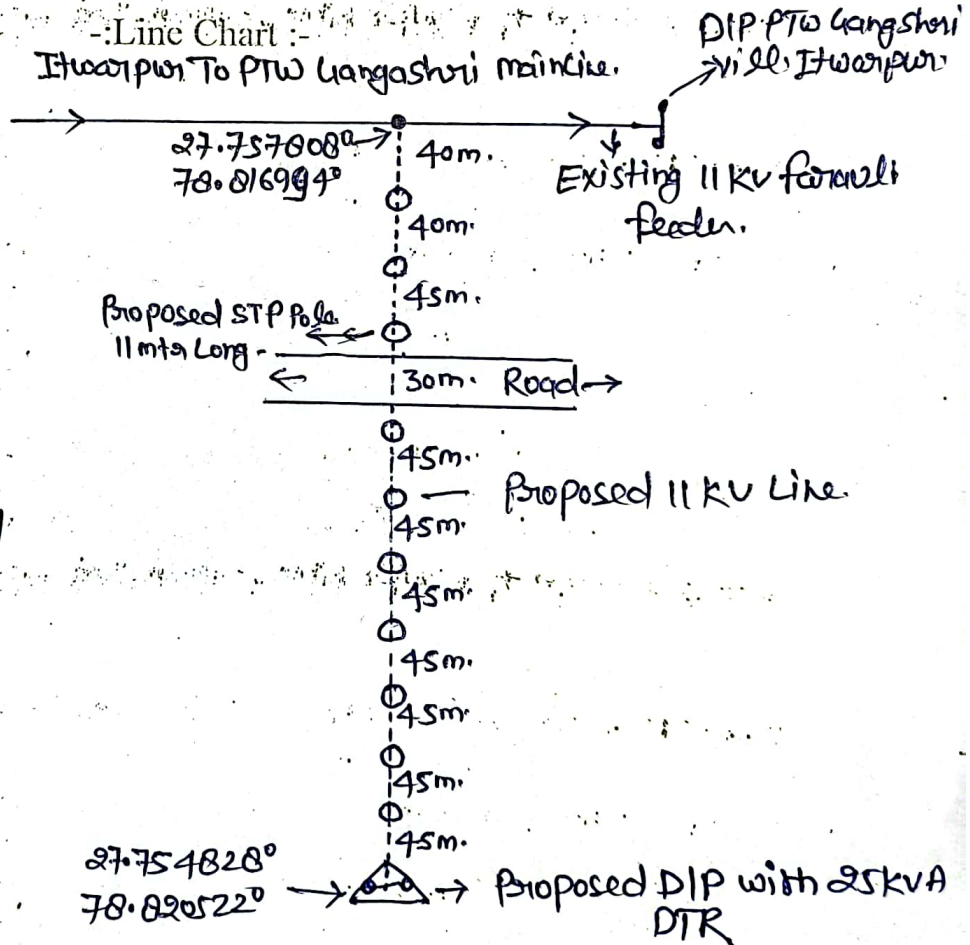 -:Line Chart :-
Itwarpur To PTW Gangashri mainline.
DIP PTW Gangshri
vill. Itwarpur
27.757808°
78.816994°
40m.
Existing 11 KV
feeder.
40m.
45m.
Proposed STP Pole
11 mtr Long -
30m. Road
45m.
Proposed 11 KV Line.
45m.
45m.
45m.
45m.
45m.
45m.
27.754828°
78.820522°
Proposed DIP with 25KVA
DTR